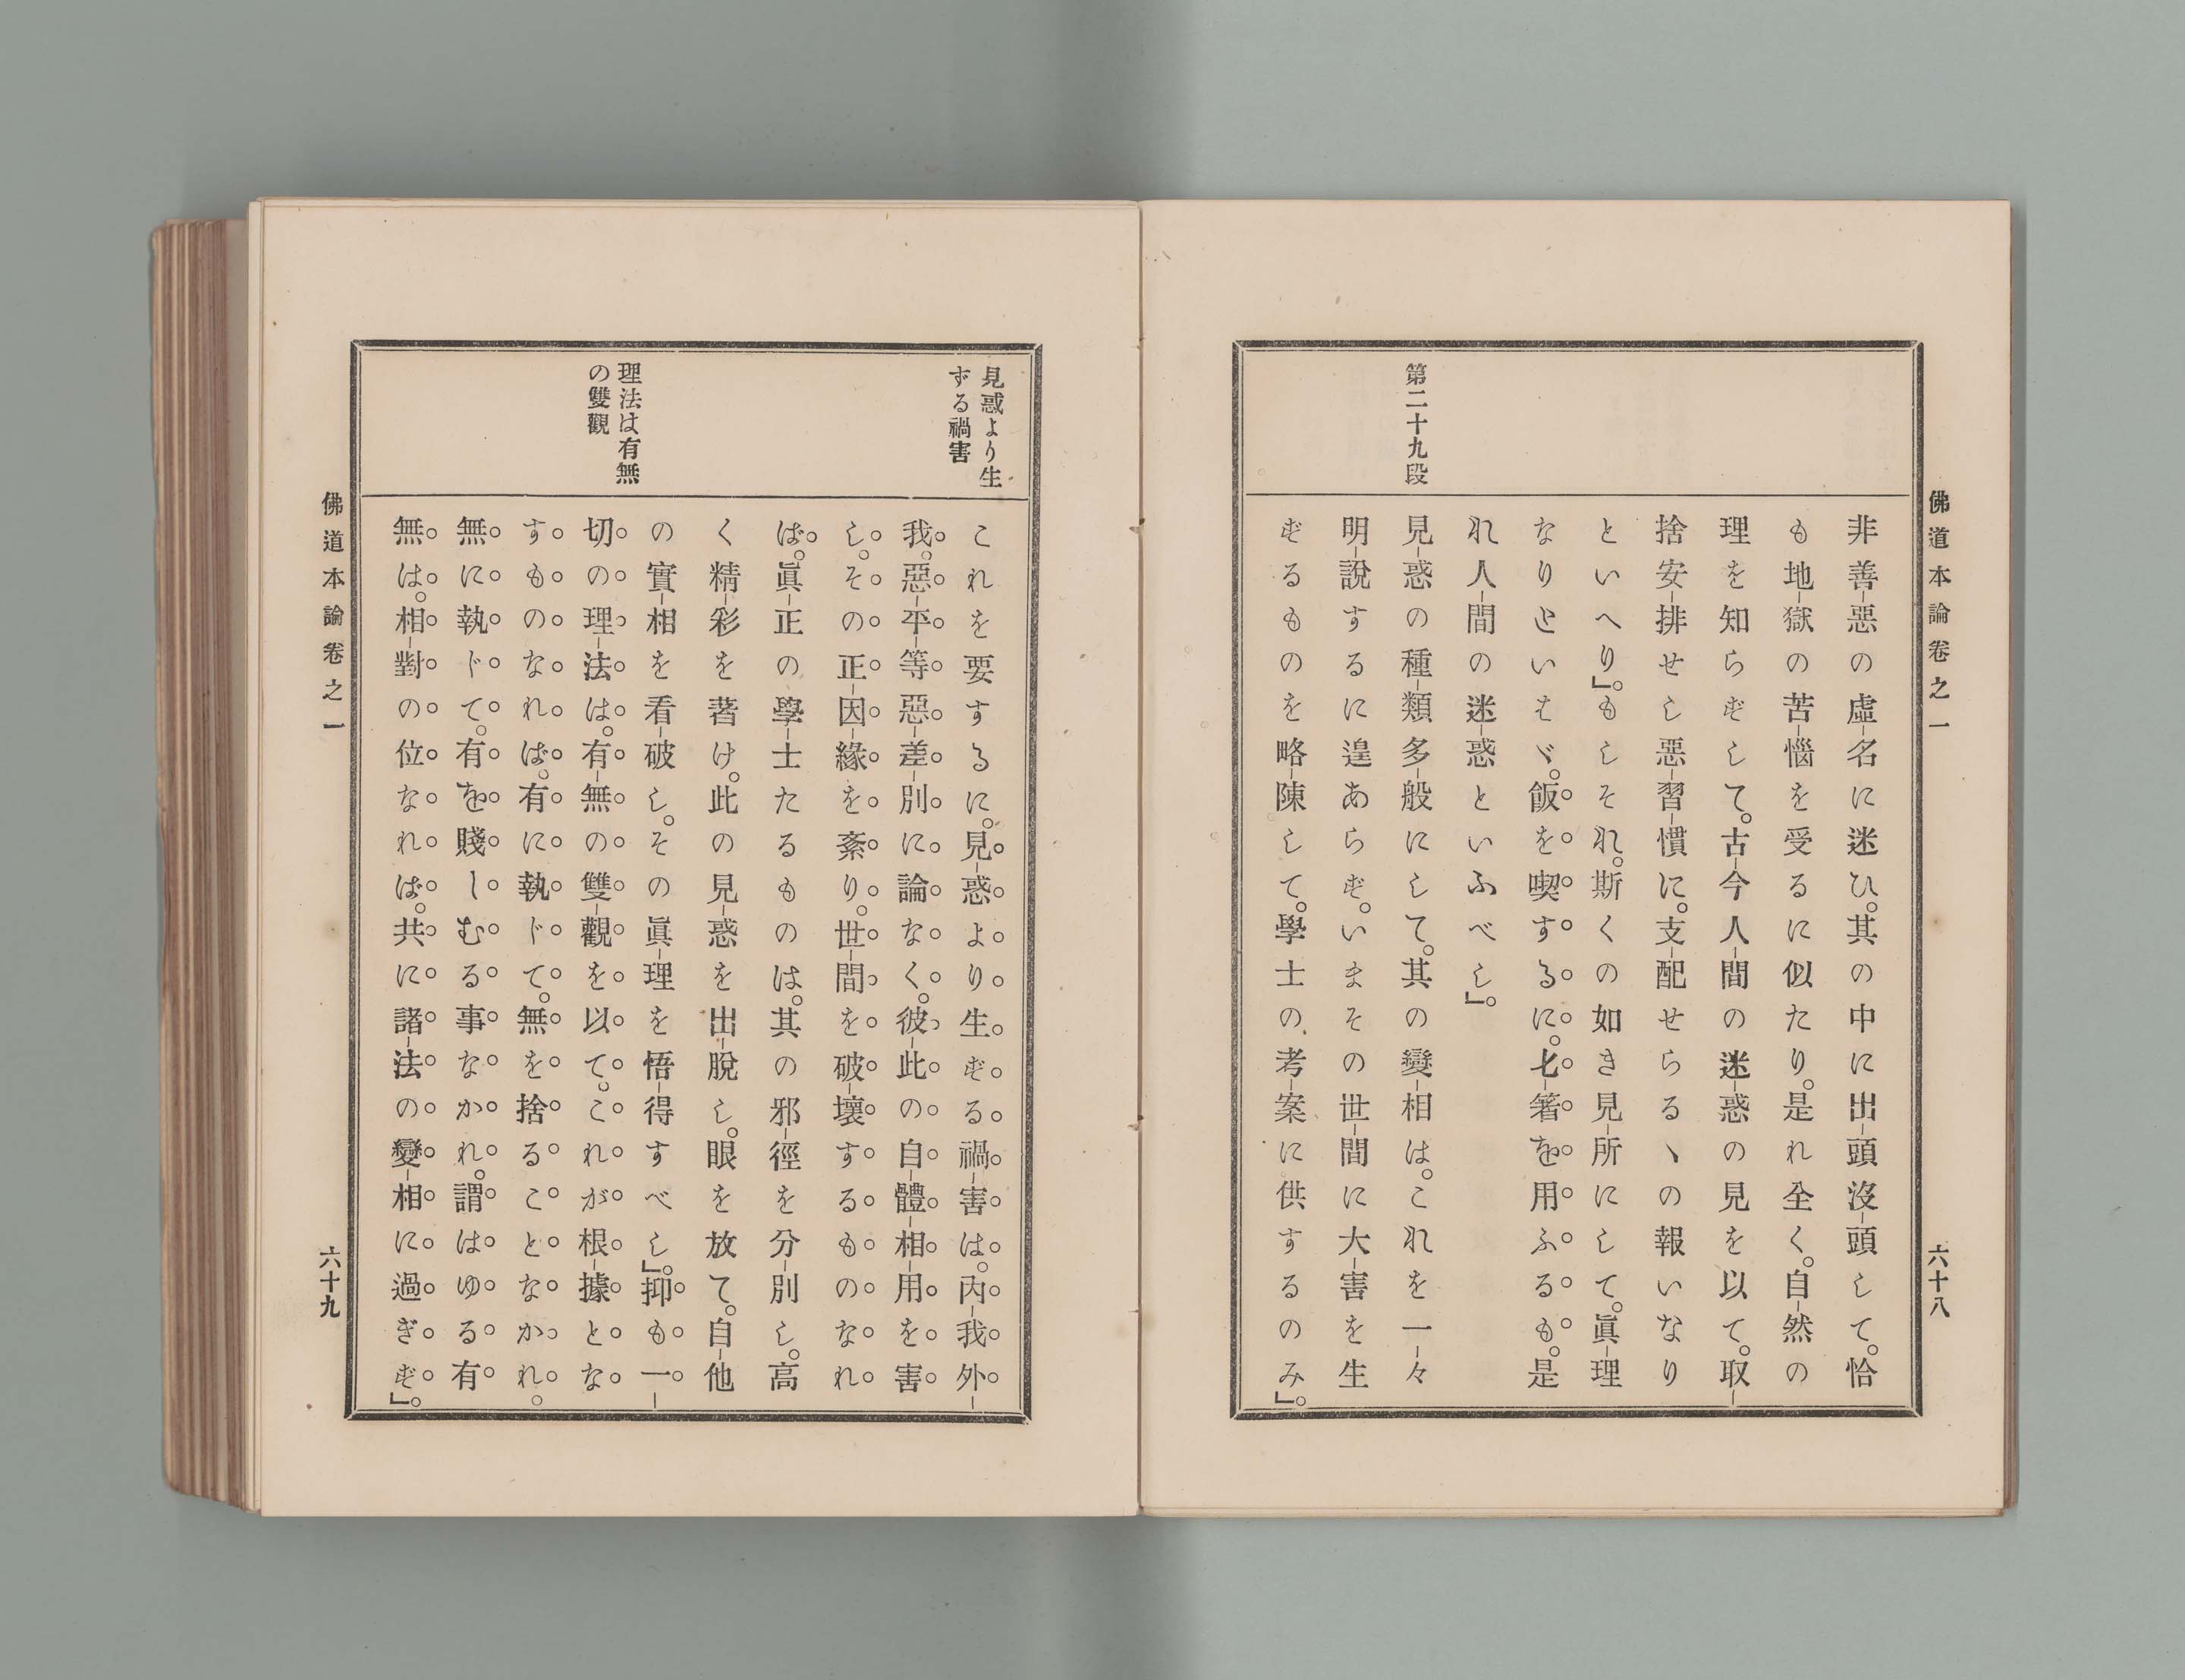 佛道本論卷之一
六十八
第二十九段
非善惡の虛名に迷ひ。其の中に出頭沒頭して。恰
も地獄の苦惱を受るに似たり。是れ全く。自然の
理を知らずして。古今人間の迷惑の見を以て。取
捨安排せし惡習慣に。支配せらるヽの報いなり
といへり』。もしそれ。斯くの如き見所にして。眞理
なりといはヾ。飯を喫するに。匕箸を用ふるも。是
れ人間の迷惑といふべし』。
見惑の種類多般にして。其の變相は。これを一々
明說するに遑あらず。いまその世間に大害を生
ずるものを略陳して。學士の考案に供するのみ』。
見惑より生
ずる禍害
理法は有無
の雙觀
これを要するに。見惑より生ずる禍害は。內我外
我。惡平等惡差別に論なく。彼此の自體相用を害
し。その正因緣を紊り。世間を破壞するものなれ
ば。眞正の學士たるものは。其の邪徑を分別し。高
く精彩を著け。此の見惑を出脫し。眼を放て。自他
の實相を看破し。その眞理を悟得すべし』。抑も一
切の理法は。有無の雙觀を以て。これが根據とな
すものなれば。有に執ドて。無を捨ることなかれ。
無に執ドて。有を賤しむる事なかれ。謂はゆる有
無は。相對の位なれば。共に諸法の變相に過ぎず』。
佛道本論卷之一
六十九